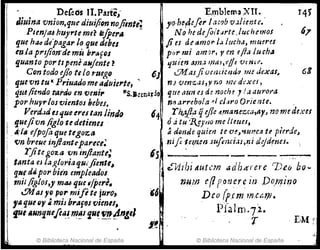 Deseos II. Parte,
diuina vnion, que diuision no siente;
Piensas huyrte me? espera
que has de pagar lo que debes
en la prision de mis braços
quanto por ti penè ausente?
Con todo esso te lo ruego
que vn tu* Priuado me aduierte,
que siendo tardo en venir
por huyr los vientos bebes.
Verdad es que eres tan lindo
que si vn siglo te detienes
à la esposa que te goza
vn breue instante parece.
Y si te goza vn instante
tanta es la gloria que siente,
que dà por bien empleados
mis siglos, y mas que espere.
Mas yo por mi fè te juro,
ya que oy à mis braços vienes,
que aunque seas mas que vn Angel
63
*S. Bernardo
64
65
66
Emblema XII.
145
yo he de ser Iacob valiente.
No he de soltarte, luchemos
67
si es de amor la lucha, mueres
por mi amor, y en esta lucha
quien ama mas, esse vence.
Mas si venciendo me dexas,
68
no venzas, y no me dexes,
que aun es de noche y la aurora
no arrebola el claro Oriente.
Hasta que esse amanezca, ay, no me dexes
ò à tu Reyno me lleues,
à donde quien te ve, nunca te pierde,
ni se temen ausencias, ni desdenes.
Mihi autem adhærere Deo bonum est ponere in Domino
Deo spem meam.
Psalm. 72.
T
EM
© Biblioteca Nacional de España
© Biblioteca Nacional de España